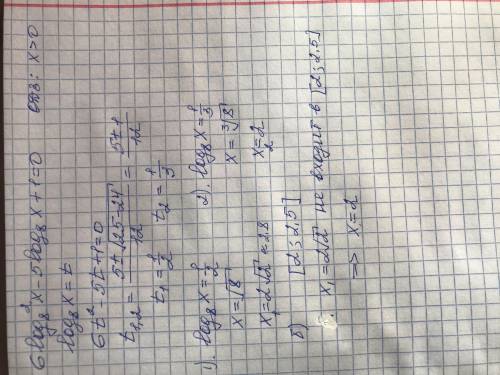 6log₈²x-5log₈x+1=0 одз: x>0
log₈x=t
6t²-5t+1=0
t₁,₂ = (5±√(25-24))/12 = (5±1)/12
t₁=1/2 t₂=1/3
1). log₈x=1/2 2). log₈x=1/3
x=√8 x=∛8
x₁=2√2≈2.8 x₂=2
б) [2;2.5]
x₁=2√2 не входит в [2;2.5]
=> x=2